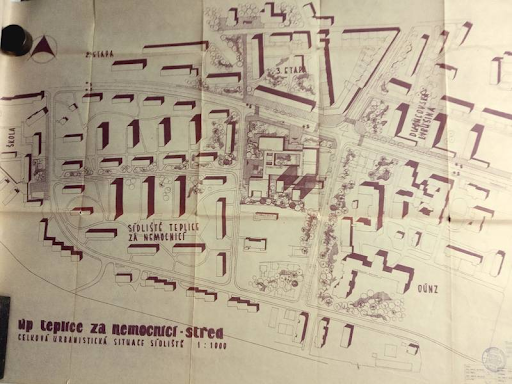 2. ETAPA
3. ETAPA
ŠKOLA
DUBÍ
SÍDLIŠTĚ TEPLICE
ZA NEMOCNICÍ
OÚNZ
Np teplice za nemocnicí - střed
CELKOVÁ URBANISTICKÁ SITUACE SÍDLIŠTĚ 1:1000